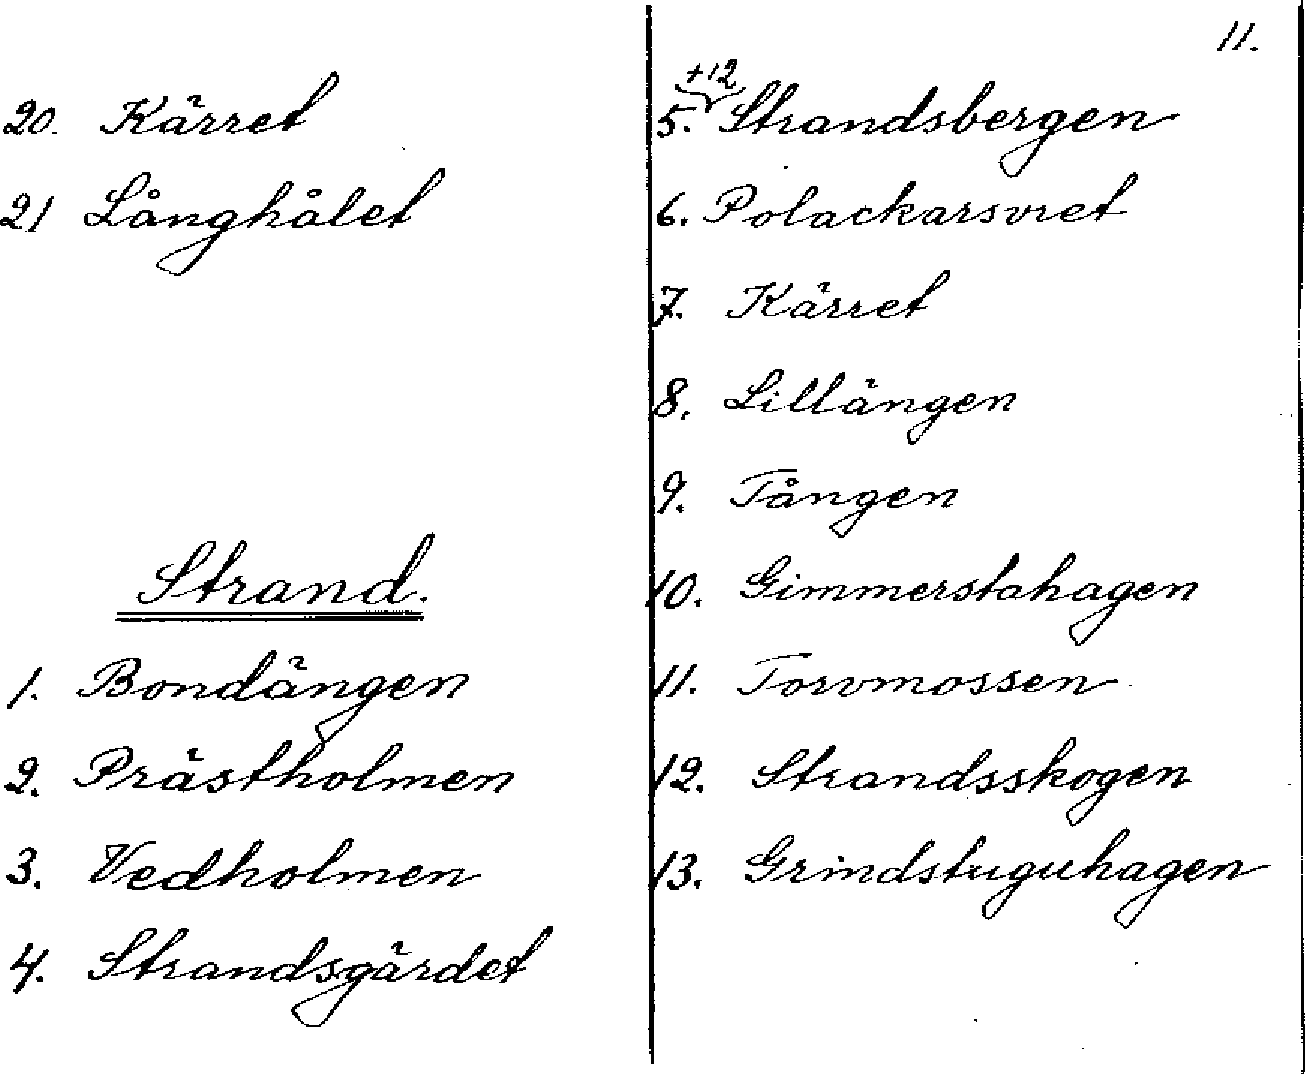 20. Kärret
21 Långhålet
Strand.
1. Bondängen
2. Prästholmen
3. Vedholmen
4. Strandsgärdet
11.
+12
5. Strandsbergen
6. Polackarsvret
7. Kärret
8. Lillängen
9. Tången
10. Gimmerstahagen
11. Torvmossen
12. Strandsskogen
13. Grindstuguhagen